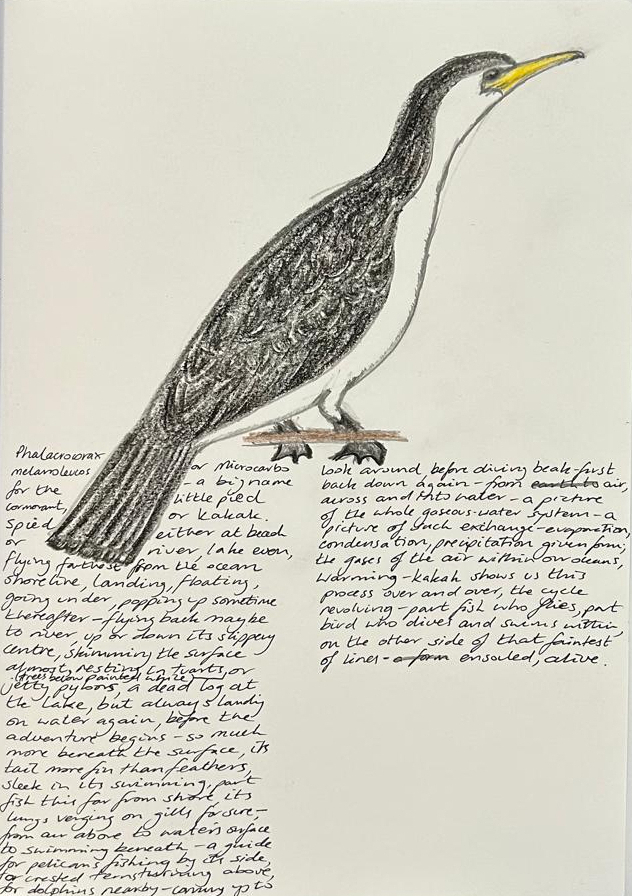 Phalacrocorax
melanoleucos or Microcarbo
for the - a big name
cormorant, little pied
Spied or Kakak.
or either at beach
river, lake even,
flying farthest from the ocean
shoreline, landing, floating,
going under, popping up sometime
thereafter - flying back maybe
to river, up or down its slippery
centre, skimming the surface
almost, resting in tuarts, or
(trees below painted white)
jetty pylons, a dead log at
the lake, but always landing
on water again, before the
adventure begins - so much
more beneath the surface, its
tail more fin than feathers,
sleek in its swimming, part
fish this far from shore its
lungs verging on gills for sure,-
from air above to water's surface
to swimming beneath - a guide
for pelicans fishing by its side,
for crested terns turning above,
for dolphins nearby - coming up to
look around before diving beak-first
back down again - from earth to air,
across and into water - a picture
of the whole gaseous-water system - a
picture of such exchange - evaporation,
condensation, precipitation given form,
the gases of the air within our oceans,
warming - kakak shows us this
process over and over, the cycle
revolving - part fish who flies, part
bird who dives and swims within
on the other side of that faintest
of lines - a form ensouled, alive.